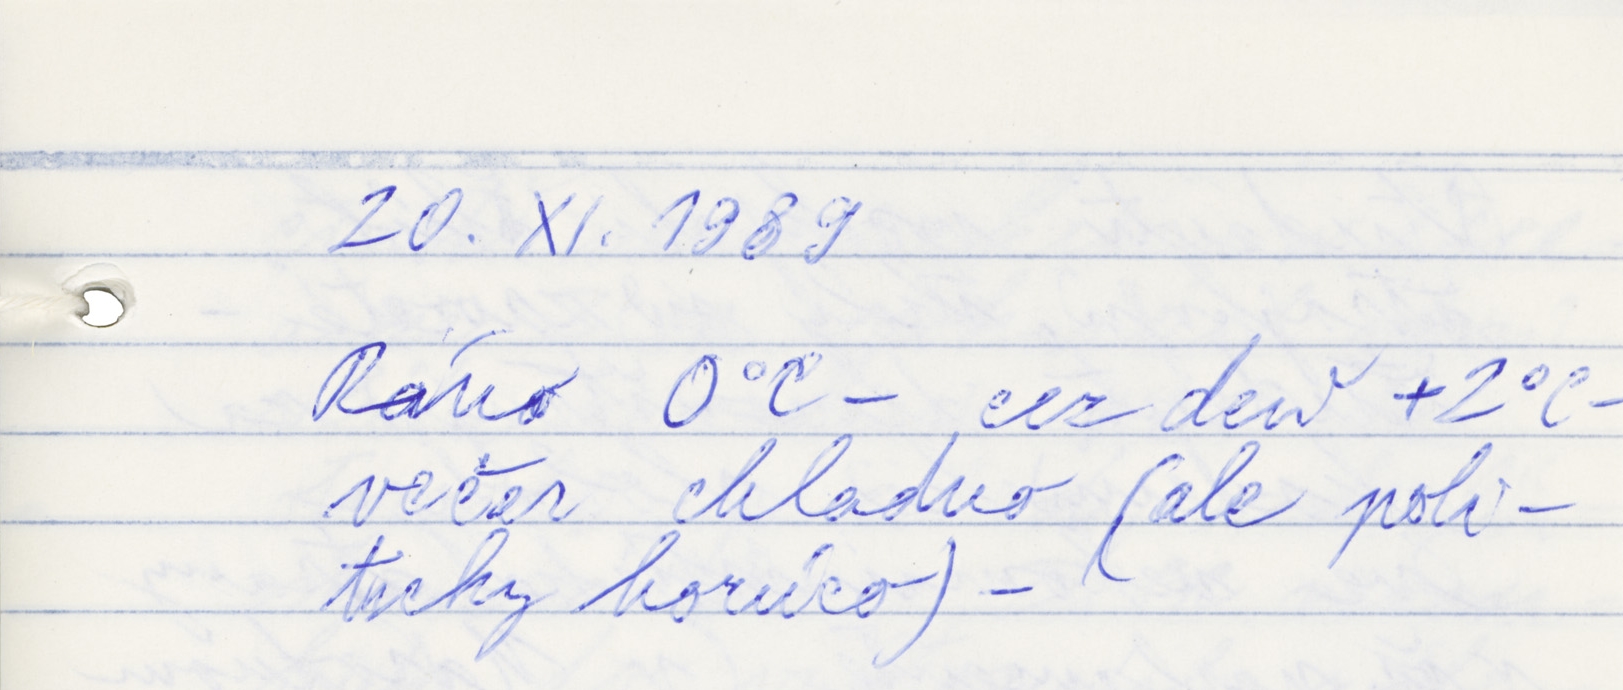 20. XI. 1989
Ráno 0°C – cez deň +2°C –
večer chladno (ale poli-
ticky horúco) –